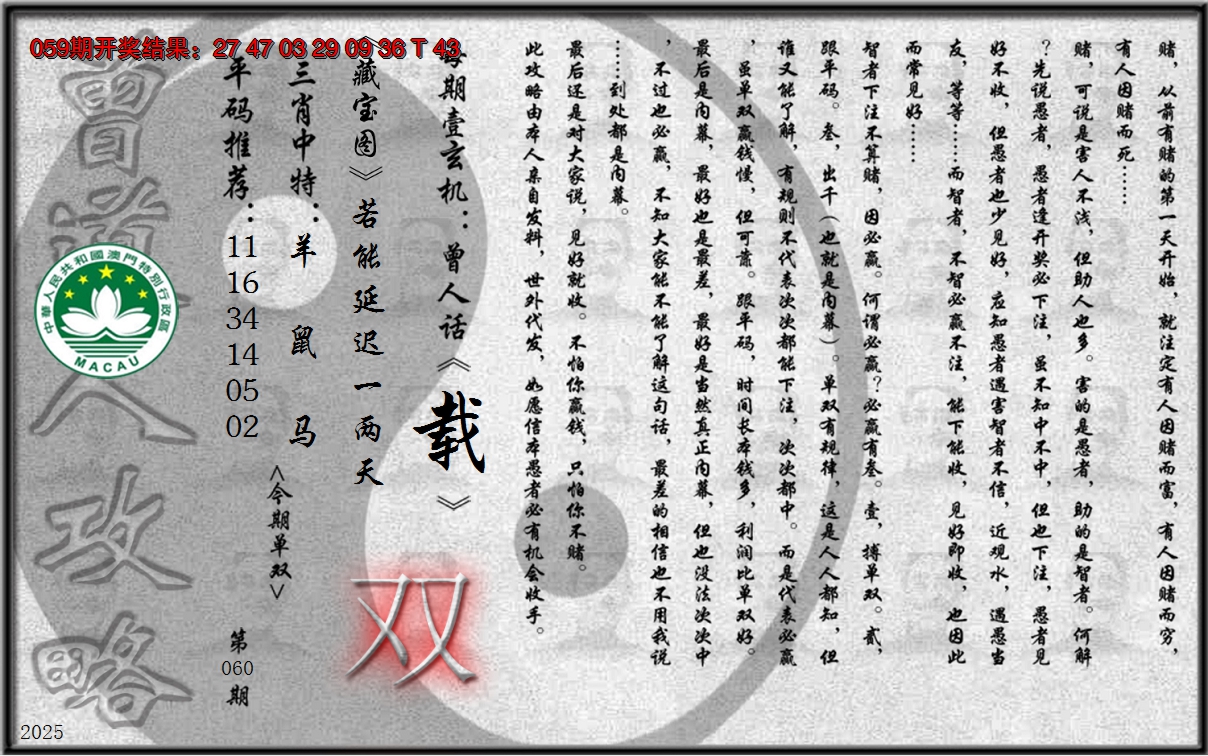 059期开奖结果：27 47 03 29 09 36 T 43
赌，从前有赌的第一天开始，就注定有人因赌而富，有人因赌而穷，
有人因赌而死……
赌，可说是害人不浅，但助人也多。害的是愚者，助的是智者。何解
？先说愚者，愚者逢开奖必下注，虽不知中不中，但也下注，愚者见
好不收，但愚者也少见好，应知愚者遇害智者不信，近观水，遇愚当
友，等等……而智者，不智必赢不注，能下能收，见好即收，也因此
而常见好……
智者下注不算赌，因必赢。何谓必赢？必赢有叁。壹，搏单双。贰，
跟平码。叁，出千（也就是内幕）。单双有规律，这是人人都知，但
谁又能了解，有规则不代表次次都能下注，次次都中。而是代表必赢
，虽单双赢钱慢，但可靠。跟平码，时间长本钱多，利润比单双好。
最后是内幕，最好也是最差，最好是当然真正内幕，但也没法次次中
，不过也必赢，不知大家能不能了解这句话，最差的相信也不用我说
……到处都是内幕。
最后还是对大家说，见好就收。不怕你赢钱，只怕你不赌。
此攻略由本人亲自发料，世外代发，如愿信本愚者必有机会收手。
每期壹玄机：曾人话《载》
《藏宝图》若能延迟一两天
双
三肖中特：羊 鼠 马
<今期单双>
平码推荐：11 16 34 14 05 02
第060期
曾道人攻略
中華人民共和國澳門特別行政區
MACAU
2025